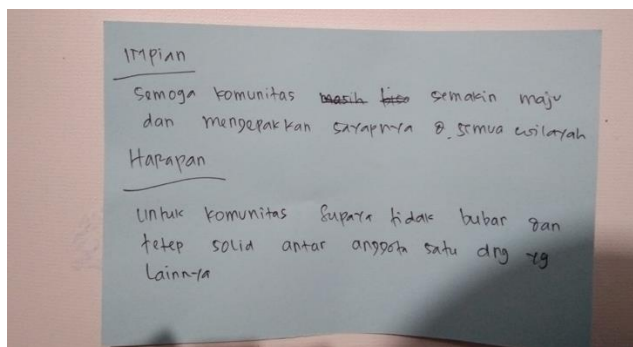 IMPIAN
Semoga komunitas masih bisa semakin maju
dan mengepakkan sayapnya d. semua wilayah
HARAPAN
Untuk komunitas supaya tidak bubar dan
tetep solid antar anggota satu dng yg
Lainnya